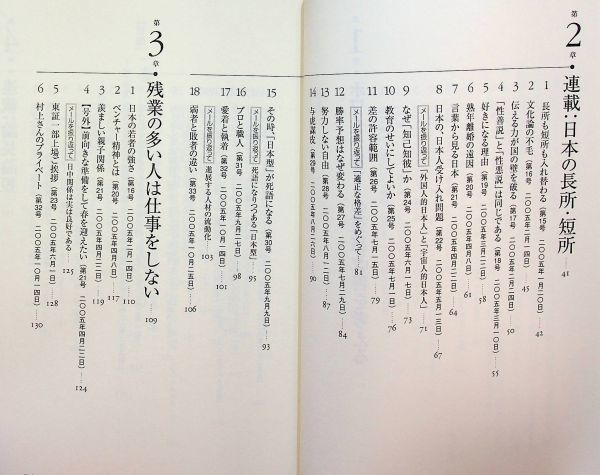 第2章・連載：日本の長所・短所 41
1 長所も短所も入れ替わる（第15号 二〇〇五年一月二〇日） 42
2 文化論の不毛（第16号 二〇〇五年二月四日） 45
3 伝える力が国の壁を破る（第17号 二〇〇五年二月二四日） 50
4 「性善説」と「性悪説」は同じである（第18号 二〇〇五年三月一〇日） 55
5 好きになる理由（第19号 二〇〇五年三月三〇日） 58
6 熟年離婚の遠因（第20号 二〇〇五年四月八日） 61
7 言葉から見る日本（第21号 二〇〇五年四月二二日） 64
8 日本の、日本人受け入れ問題（第22号 二〇〇五年五月一三日） 67
メールを振り返って 「外国人的日本人」と「宇宙人的日本人」 71
9 なぜ「知己知彼」か（第24号 二〇〇五年六月一七日） 73
10 教育のせいにしてよいか（第25号 76
11 差の許容範囲（第26号 二〇〇五年七月一五日） 79
メールを振り返って 「適正な格差」をめぐって 81
12 勝率予想はなぜ変わる（第27号 二〇〇五年七月二九日） 84
13 努力しない自由（第28号 87
14 与虎謀皮（第29号 二〇〇五年八月二六日） 90
15 その時、「日本型」が死語になる（第30号 二〇〇五年九月九日） 93
メールを振り返って 死語になりつつある「日本型」 95
16 プロと職人（第31号 二〇〇五年九月二七日） 98
17 愛着と執着（第32号 101
メールを振り返って 進展する人材の流動化 103
18 弱者と敗者の違い（第33号 二〇〇五年一〇月二五日） 106
第3章・残業の多い人は仕事をしない 109
1 日本の若者の強さ（第16号 二〇〇五年二月四日） 110
2 ベンチャー精神とは（第20号 二〇〇五年四月八日） 117
3 羨ましい親子関係（第21号 二〇〇五年四月二二日） 119
4 【号外】前向きな準備をして春を迎えたい（第21号 二〇〇五年四月二二日） 124
メールを振り返って 日中関係は実は良好である 125
5 東証一部上場ご挨拶（第23号 二〇〇五年六月一日） 128
6 村上さんのプライベート（第32号 二〇〇五年一〇月一四日） 130